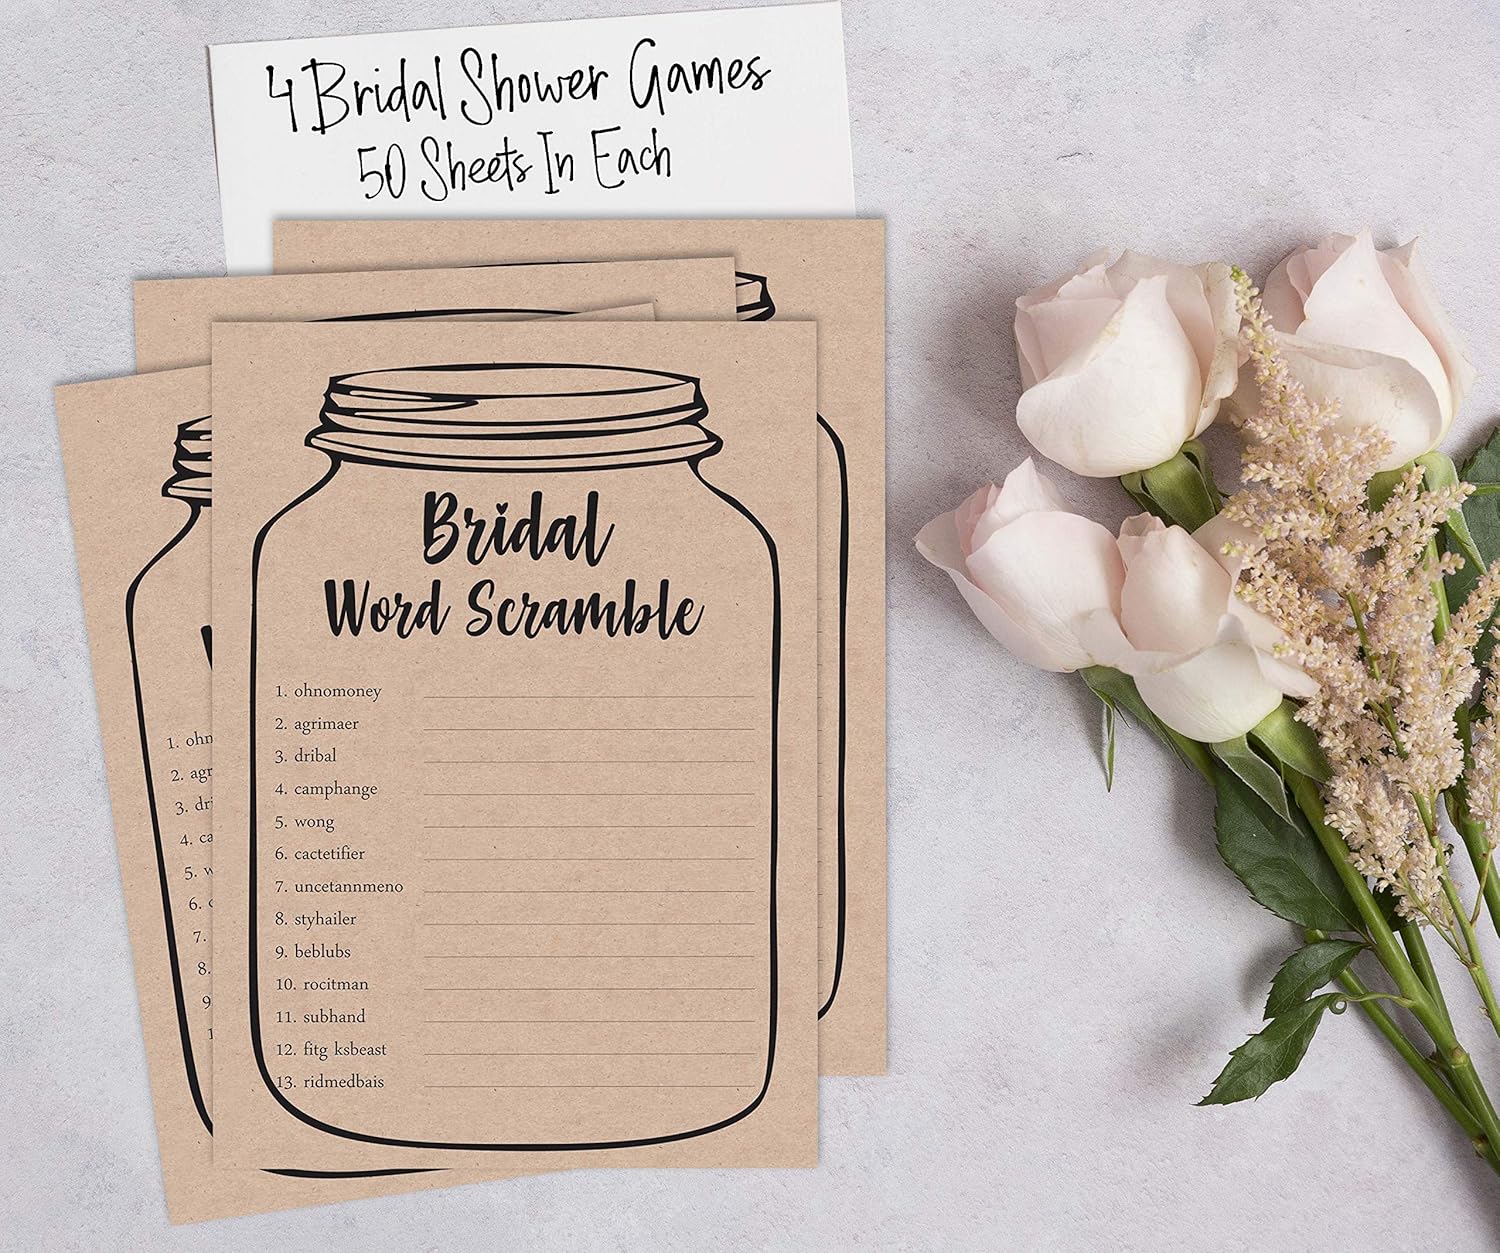 4 Bridal Shower Games
50 Sheets In Each
Bridal
Word Scramble
1. ohnomoney
2. agrimaer
3. dribal
4. camphange
5. wong
6. cactetifier
7. uncetannmeno
8. styhailer
9. beblubs
10. rocitman
11. subhand
12. fitg ksbeast
13. ridmedbais
1. ohn
2. agr
3. dri
4. ca
5. w
6. c
7.
8.
9
1